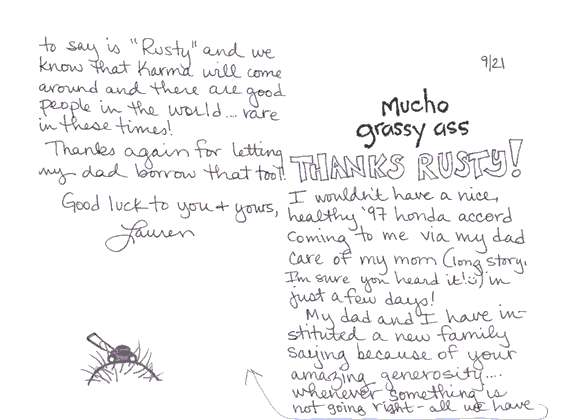 9/21
Mucho
grassy ass
THANKS RUSTY!
I wouldn't have a nice,
healthy '97 honda accord
coming to me via my dad
care of my mom (long story.
I'm sure you heard it! :)) in
just a few days!
My dad and I have in-
stituted a new family
saying because of your
amazing generosity....
whenever something is
not going right - all we have
to say is "Rusty" and we
know that Karma will come
around and there are good
people in the world... rare
in these times!
Thanks again for letting
my dad borrow that tool!
Good luck to you & yours,
Lauren